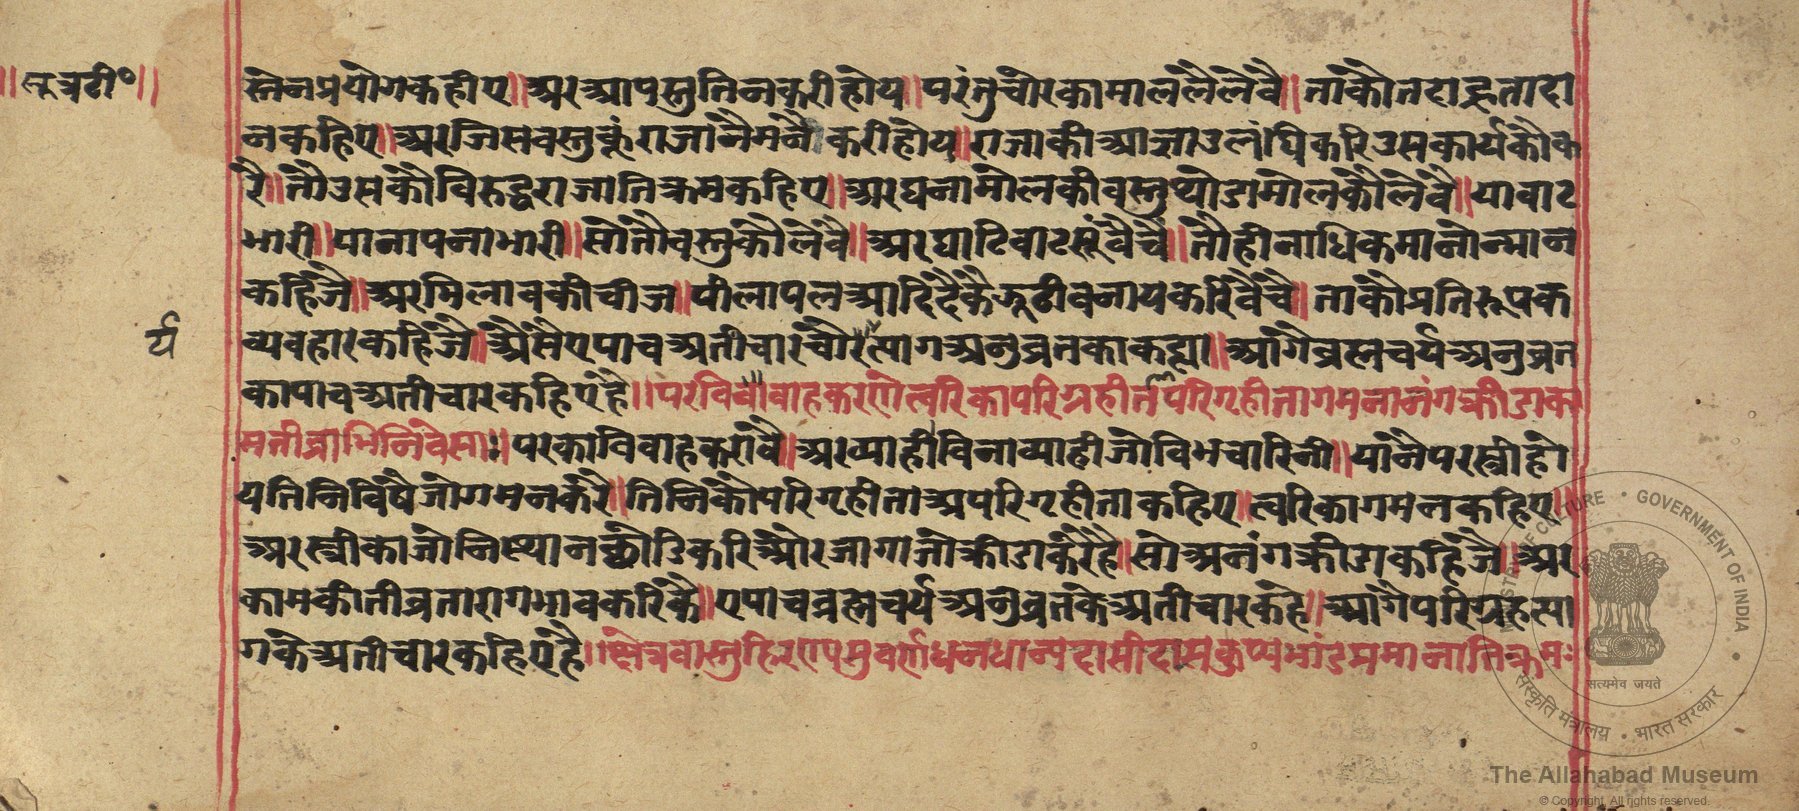 ॥सूत्रटी०॥
स्तेनप्रयोगकहीए॥अरआपस्तुतिनकरीहोय॥परंतुचोरकामाललैलेवै॥ताकौतदाहृतादा
नकहिए॥अरजिसवस्तुकूंराजानैमनैकरीहोय॥राजाकीआज्ञाउलंघिकरिउसकार्यकौक
रै॥तौउसकौविरुद्धराजातिक्रमकहिए॥अरघनामोलकीवस्तुथोडामोलकौलेवै॥यावाट
भारी॥पानापनाभारी॥सोतौवस्तुकौलेवै॥अरघाटिवाटसूंवैचै॥तौहीनाधिकमानोन्मान
कहिजै॥अरमिलावकीचीज॥पीलापलआदिदेकैझूठीवनायकरिवैचै॥ताकौप्रतिरूपक
र्य
व्यवहारकहिजै॥अैसैएपाचअतीचारचौरत्यागअनुव्रतकाकह्या॥आगैव्रह्मचर्यअनुव्रत
कापाचअतीचारकहिएहै॥परविवाहकरणेत्वरिकापरिग्रहीतपरिगृहीतागमनानंगक्रीडाका
मतीव्राभिनिवेसाः॥परकाविवाहकरावै॥अरव्याहीविनाव्याहीजोविभचारिनी॥यानैपरस्त्रीहो
यतिनिविषैजोगमनकरै॥तिनिकौपरिगृहीताअपरिगृहीताकहिए॥त्वरिकागमनकहिए॥
अरस्त्रीकाजोनिस्थानछोडिकरिऔरजागाजोक्रीडाकरैहै॥सोअनंगक्रीडाकहिजै॥अर
कामकीतीव्रतारागभावकरिकै॥एपाचव्रह्मचर्यअनुव्रतकेअतीचारकहे॥आगैपरिग्रहत्या
गकेअतीचारकहिएहै॥क्षेत्रवास्तुहिरण्यसुवर्णधनधान्यदासीदासकुप्यभांडप्रमानातिक्रमः
MINISTRY OF CULTURE • GOVERNMENT OF INDIA
सत्यमेव जयते
संस्कृति मंत्रालय • भारत सरकार
The Allahabad Museum
© Copyright, All rights reserved.